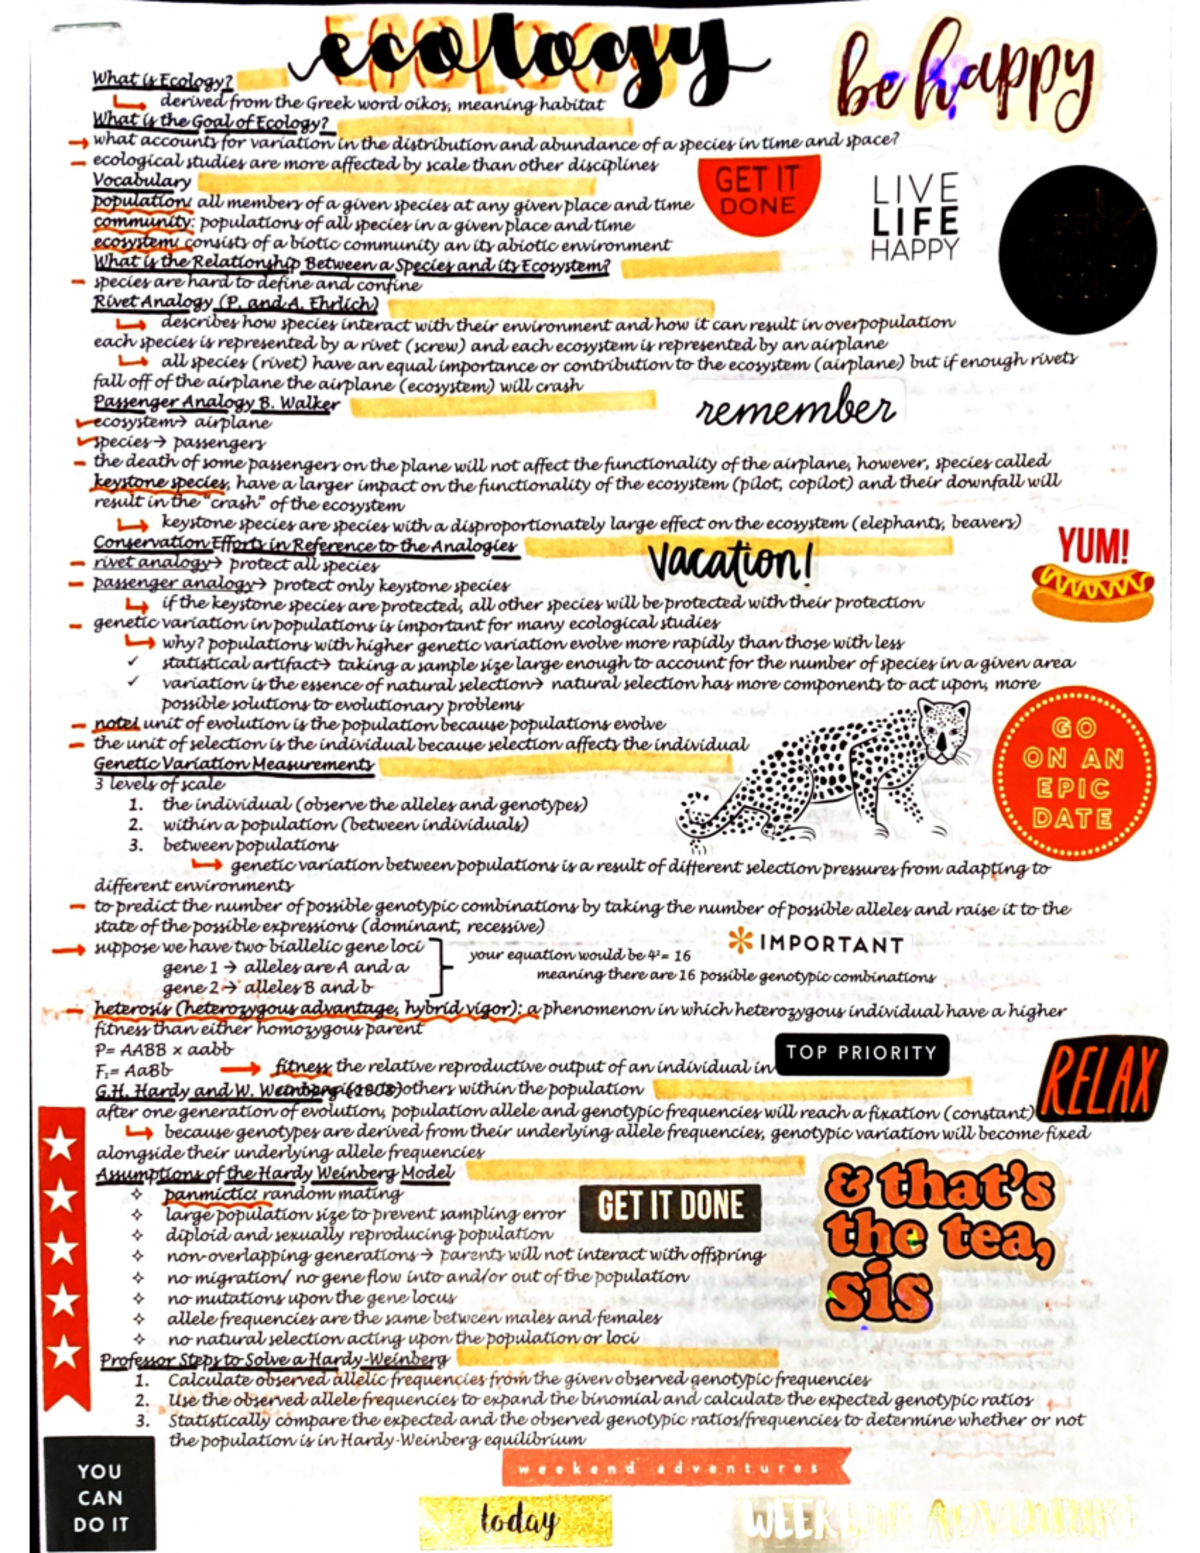 ecology
be happy
What is Ecology?
derived from the Greek word oikos, meaning habitat
What is the Goal of Ecology?
what accounts for variation in the distribution and abundance of a species in time and space?
ecological studies are more affected by scale than other disciplines
Vocabulary
GET IT
DONE
LIVE
LIFE
HAPPY
population: all members of a given species at any given place and time
community: populations of all species in a given place and time
ecosystem: consists of a biotic community an its abiotic environment
What is the Relationship Between a Species and its Ecosystem?
species are hard to define and confine
Rivet Analogy (P. and A. Ehrlich)
describes how species interact with their environment and how it can result in overpopulation
each species is represented by a rivet (screw) and each ecosystem is represented by an airplane
all species (rivet) have an equal importance or contribution to the ecosystem (airplane) but if enough rivets
fall off of the airplane the airplane (ecosystem) will crash
Passenger Analogy B. Walker
remember
ecosystem→ airplane
species→ passengers
the death of some passengers on the plane will not affect the functionality of the airplane, however, species called
keystone species, have a larger impact on the functionality of the ecosystem (pilot, copilot) and their downfall will
result in the "crash" of the ecosystem
keystone species are species with a disproportionately large effect on the ecosystem (elephants, beavers)
YUM!
Conservation Efforts in Reference to the Analogies
vacation!
rivet analogy→ protect all species
passenger analogy→ protect only keystone species
if the keystone species are protected, all other species will be protected with their protection
genetic variation in populations is important for many ecological studies
why? populations with higher genetic variation evolve more rapidly than those with less
✓ statistical artifact→ taking a sample size large enough to account for the number of species in a given area
✓ variation is the essence of natural selection→ natural selection has more components to act upon, more
possible solutions to evolutionary problems
note! unit of evolution is the population because populations evolve
the unit of selection is the individual because selection affects the individual
GO
ON AN
EPIC
DATE
Genetic Variation Measurements
3 levels of scale
1. the individual (observe the alleles and genotypes)
2. within a population (between individuals)
3. between populations
genetic variation between populations is a result of different selection pressures from adapting to
different environments
to predict the number of possible genotypic combinations by taking the number of possible alleles and raise it to the
state of the possible expressions (dominant, recessive)
IMPORTANT
suppose we have two biallelic gene loci
gene 1 → alleles are A and a
gene 2→ alleles B and b
your equation would be 4²= 16
meaning there are 16 possible genotypic combinations
heterosis (heterozygous advantage, hybrid vigor): a phenomenon in which heterozygous individual have a higher
fitness than either homozygous parent
P= AABB × aabb
F₁= AaBb
fitness: the relative reproductive output of an individual in
others within the population
TOP PRIORITY
RELAX
G.H. Hardy and W. Weinberg (1908)
after one generation of evolution, population allele and genotypic frequencies will reach a fixation (constant)
because genotypes are derived from their underlying allele frequencies, genotypic variation will become fixed
alongside their underlying allele frequencies
Assumptions of the Hardy Weinberg Model
panmictic: random mating
large population size to prevent sampling error
diploid and sexually reproducing population
non-overlapping generations→ parents will not interact with offspring
no migration/ no gene flow into and/or out of the population
no mutations upon the gene locus
allele frequencies are the same between males and females
no natural selection acting upon the population or loci
GET IT DONE
& that's
the tea,
sis
Professor Steps to Solve a Hardy-Weinberg
1. Calculate observed allelic frequencies from the given observed genotypic frequencies
2. Use the observed allele frequencies to expand the binomial and calculate the expected genotypic ratios
3. Statistically compare the expected and the observed genotypic ratios/frequencies to determine whether or not
the population is in Hardy-Weinberg equilibrium
YOU
CAN
DO IT
weekend adventures
today
WEEKEND ADVENTURE